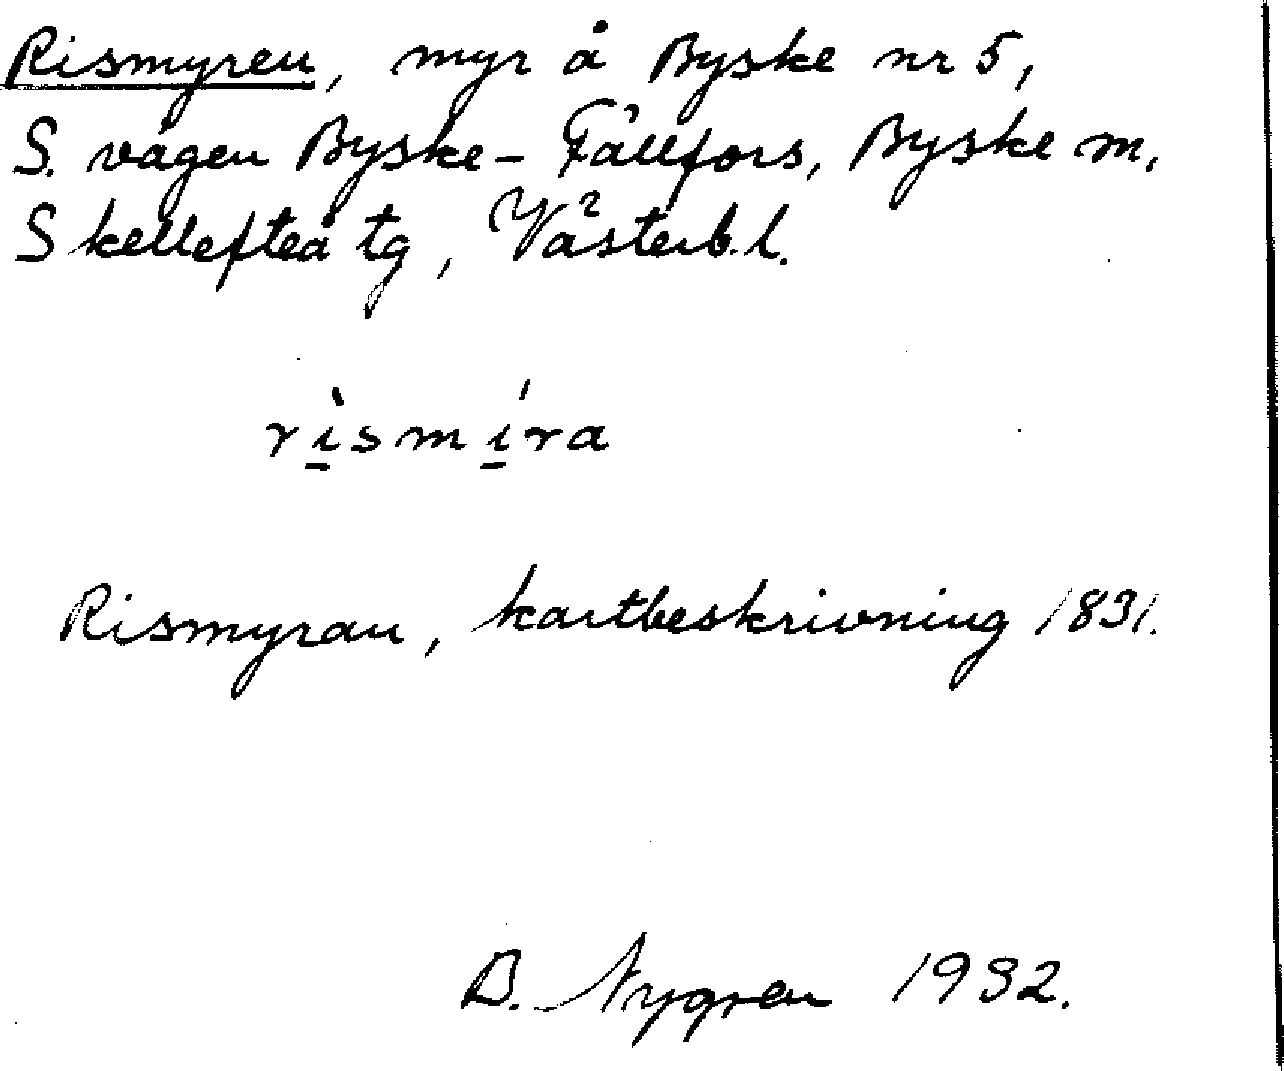 Rismyren, myr å Byske nr 5,
S. vägen Byske - Fällfors, Byske sn,
Skellefteå tg, Västerb. l.
rı̱̀smı̱́ra
Rismyran, kartbeskrivning 1831.
B. Nygren 1932.